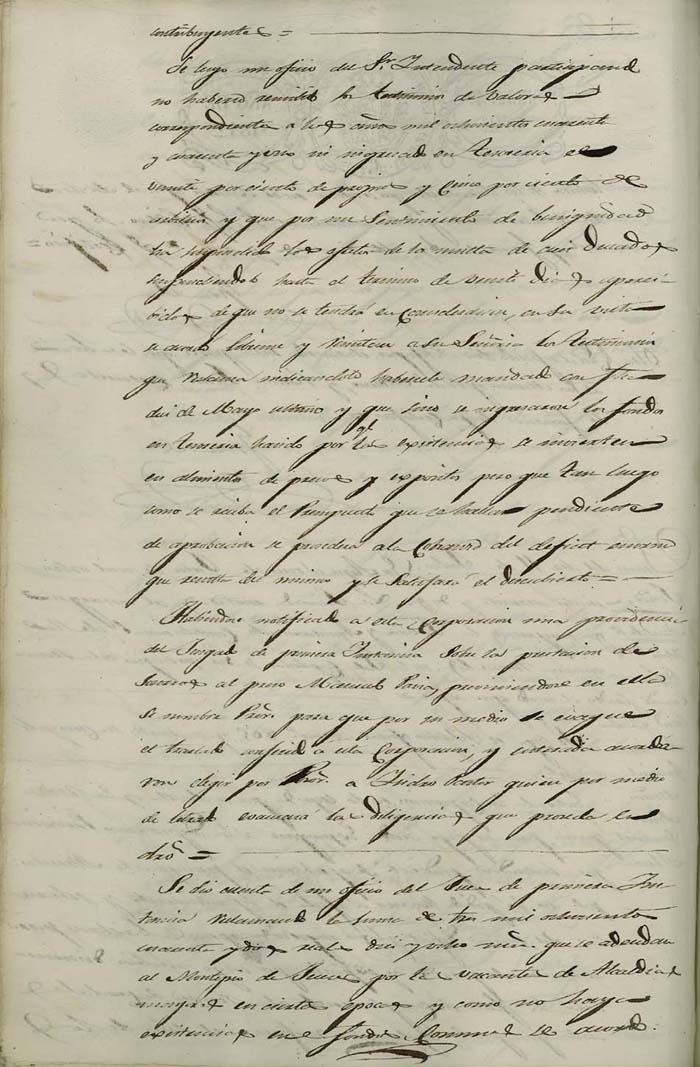 contribuyentes =
Se leyo un oficio del Sr. Intendente participando
no haberse remitido los testimonios de valores
correspondientes á los años mil ochocientos cuarenta
y cuarenta y uno ni ingresado en Tesoreria el
veinte por ciento de propios y cinco por ciento de
arbitrios y que por un sentimiento de benignidad
ha suspendido los efectos de la multa de cien ducados
suspendiendolo hasta el termino de veinte dias aperci-
bidos de que no se tendrá en consideracion, en su vista
se acordó librense y remitan a su Señoria los testimonios
que reclama indicandole haberle mandado con fecha
dos de Mayo ultimo y que sino se ingresaron los fondos
en tesoreria ha sido por qe las existencias se invierten
en alimentos de presos y expositos pero que tan luego
como se reciba el Presupuesto que se halla pendiente
de aprobacion se procederá a la cobranza del deficit
que resulta del mismo y se satisfará el descubierto =
Habiendose notificado a esta Corporacion una providencia
del Juzgado de primera Instancia sobre la prestacion de
socorros al preso Manuel previniendose en ella
se nombre Pror. para que por su medio se evacue
el traslado conferido a esta Corporacion, y entendida acorda-
ron elegir por Pror. a Isidro Pastor quien por medio
de Letrado evacuará las diligencias que proceda en
dro =
Se dio cuenta de un oficio del Juez de primera Ins-
tancia reclamando la suma de tres mil ochocientos
cuarenta y dos reales diez y ocho mrs. que se adeudan
al Montepio de Jueces por las vacantes de Alcaldias
mayores en cierta epoca y como no haya
existencias en los fondos Comunes se acordó